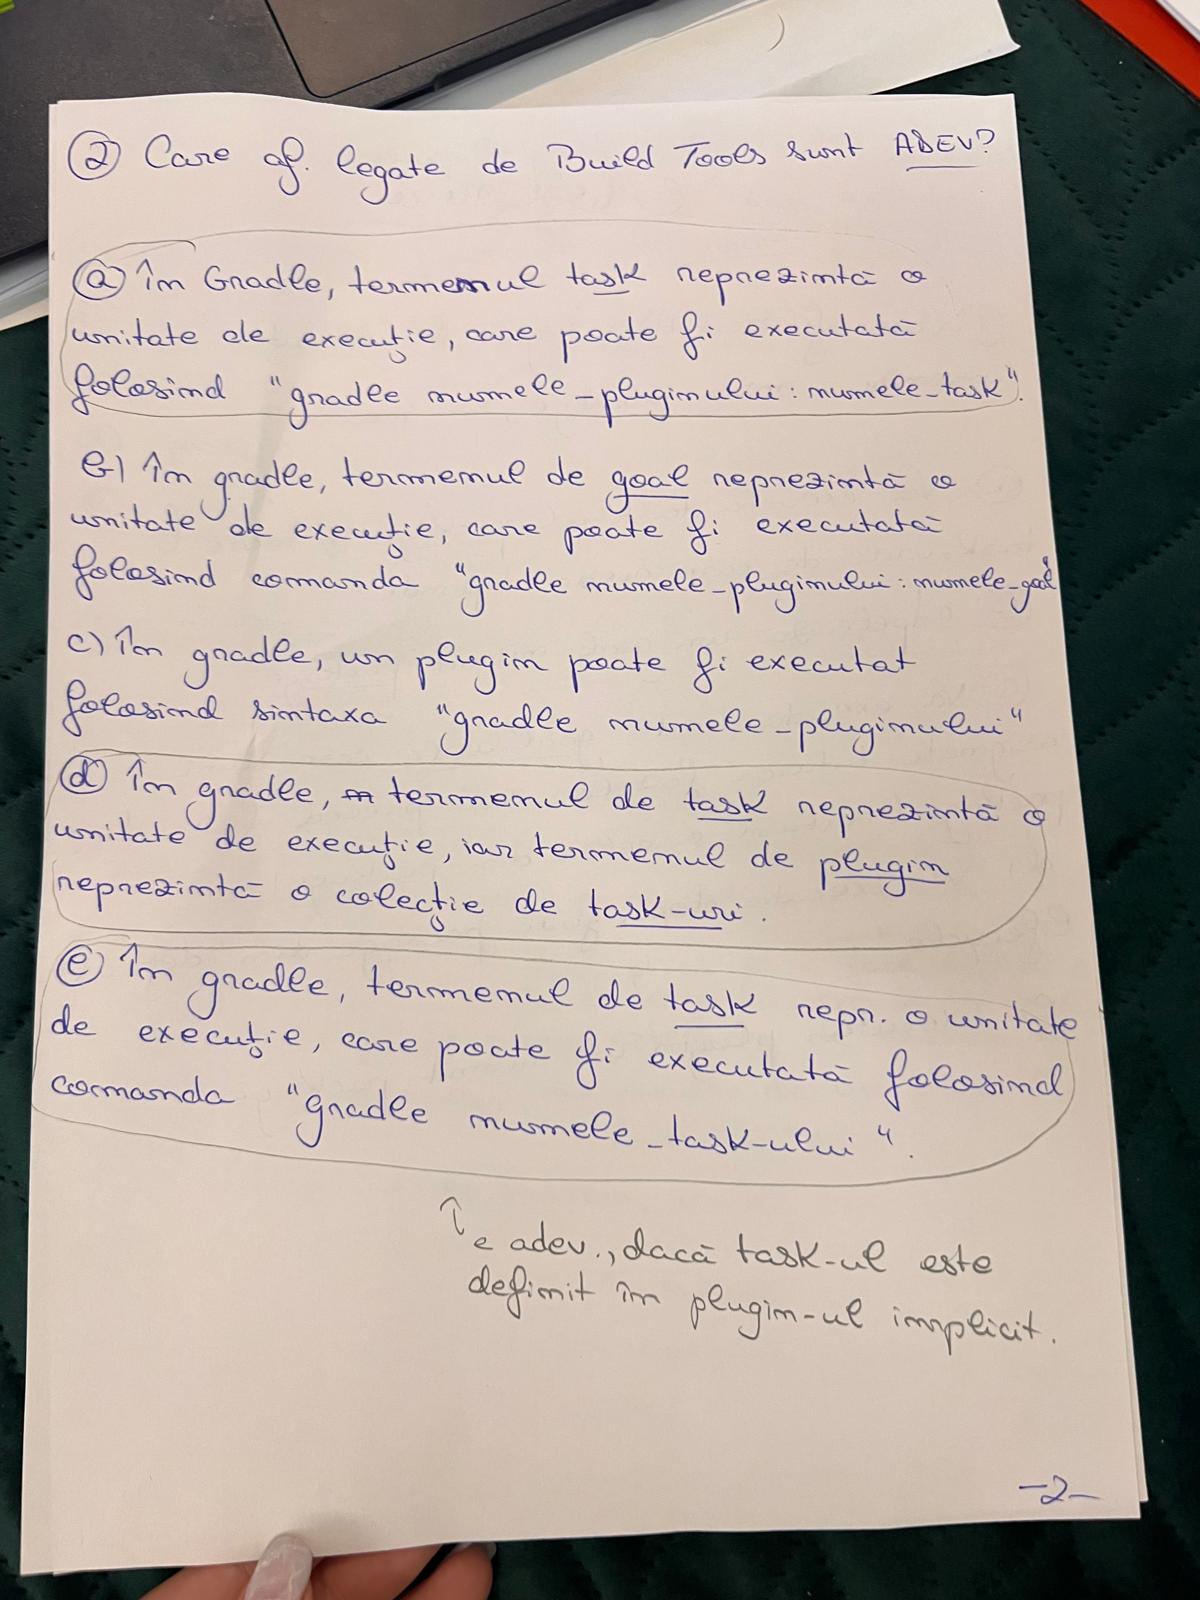 ② Care af. legate de Build Tools sunt ADEV?
ⓐ În Gradle, termenul task reprezintă o
unitate de execuție, care poate fi executată
folosind "gradle numele_pluginului: numele_task".
b) În gradle, termenul de goal reprezintă o
unitate de execuție, care poate fi executată
folosind comanda "gradle numele_pluginului: numele_goal"
c) În gradle, un plugin poate fi executat
folosind sintaxa "gradle numele_pluginului"
ⓓ În gradle, termenul de task reprezintă o
unitate de execuție, iar termenul de plugin
reprezintă o colecție de task-uri.
ⓔ În gradle, termenul de task repr. o unitate
de execuție, care poate fi executată folosind
comanda "gradle numele_task-ului".
↑ e adev., dacă task-ul este
definit în plugin-ul implicit.
-2-